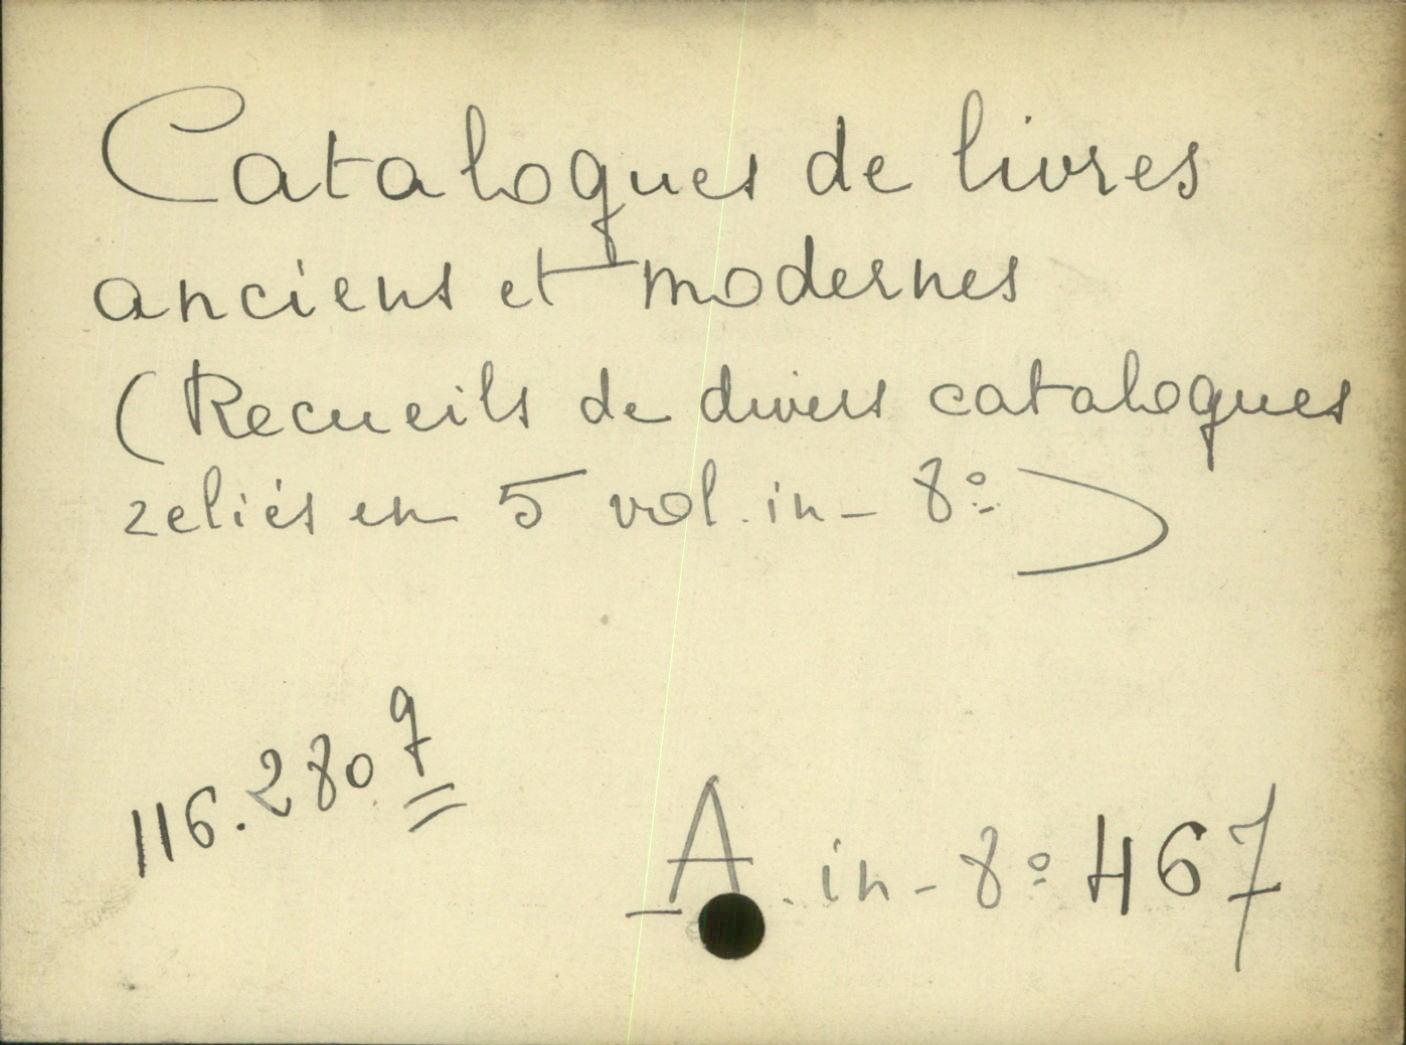 Catalogues de livres
anciens et modernes
(Recueils de divers catalogues
reliés en 5 vol. in-8º)
116.280 9
A. in-8º 467